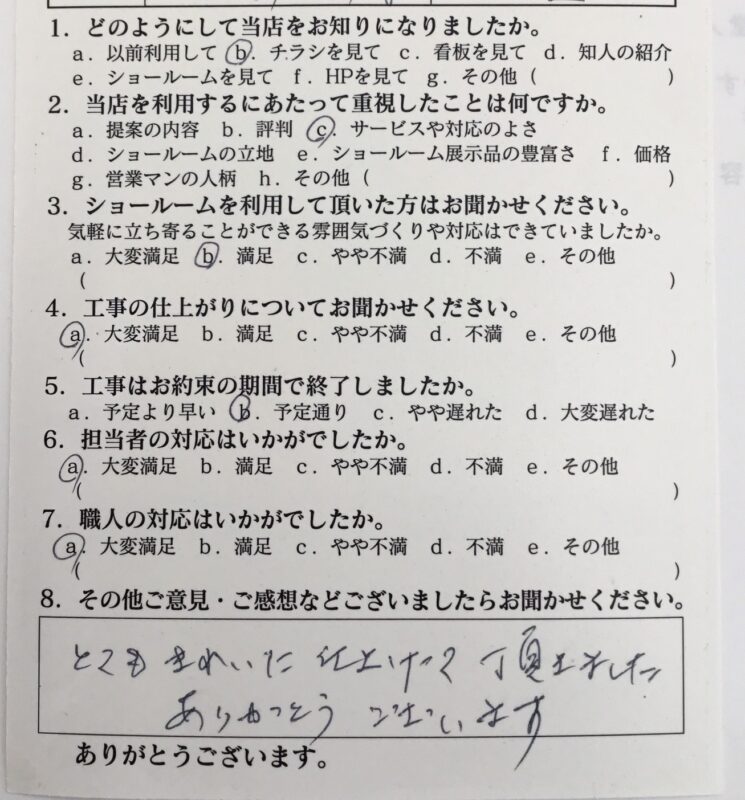 1．どのようにして当店をお知りになりましたか。
a．以前利用して b．チラシを見て c．看板を見て d．知人の紹介
e．ショールームを見て f．HPを見て g．その他（ ）
2．当店を利用するにあたって重視したことは何ですか。
a．提案の内容 b．評判 c．サービスや対応のよさ
d．ショールームの立地 e．ショールーム展示品の豊富さ f．価格
g．営業マンの人柄 h．その他（ ）
3．ショールームを利用して頂いた方はお聞かせください。
気軽に立ち寄ることができる雰囲気づくりや対応はできていましたか。
a．大変満足 b．満足 c．やや不満 d．不満 e．その他
（ ）
4．工事の仕上がりについてお聞かせください。
a．大変満足 b．満足 c．やや不満 d．不満 e．その他
（ ）
5．工事はお約束の期間で終了しましたか。
a．予定より早い b．予定通り c．やや遅れた d．大変遅れた
6．担当者の対応はいかがでしたか。
a．大変満足 b．満足 c．やや不満 d．不満 e．その他
（ ）
7．職人の対応はいかがでしたか。
a．大変満足 b．満足 c．やや不満 d．不満 e．その他
（ ）
8．その他ご意見・ご感想などございましたらお聞かせください。
とてもきれいに仕上げて頂きました
ありがとうございます
ありがとうございます。